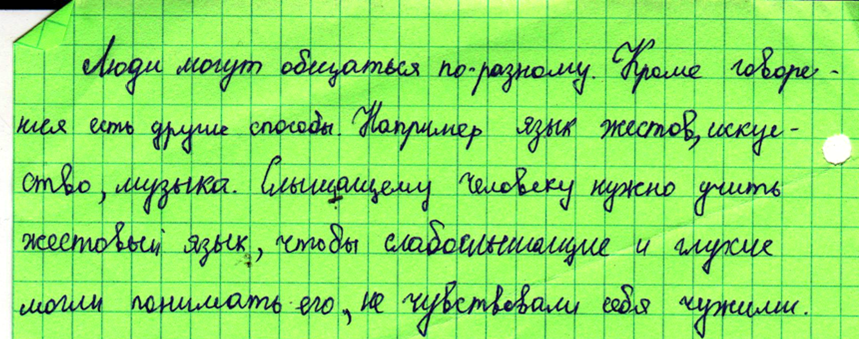 Люди могут общаться по-разному. Кроме говоре-
ния есть другие способы. Например язык жестов, искус-
ство, музыка. Слышащему человеку нужно учить
жестовый язык, чтобы слабослышащие и глухие
могли понимать его, не чувствовали себя чужими.